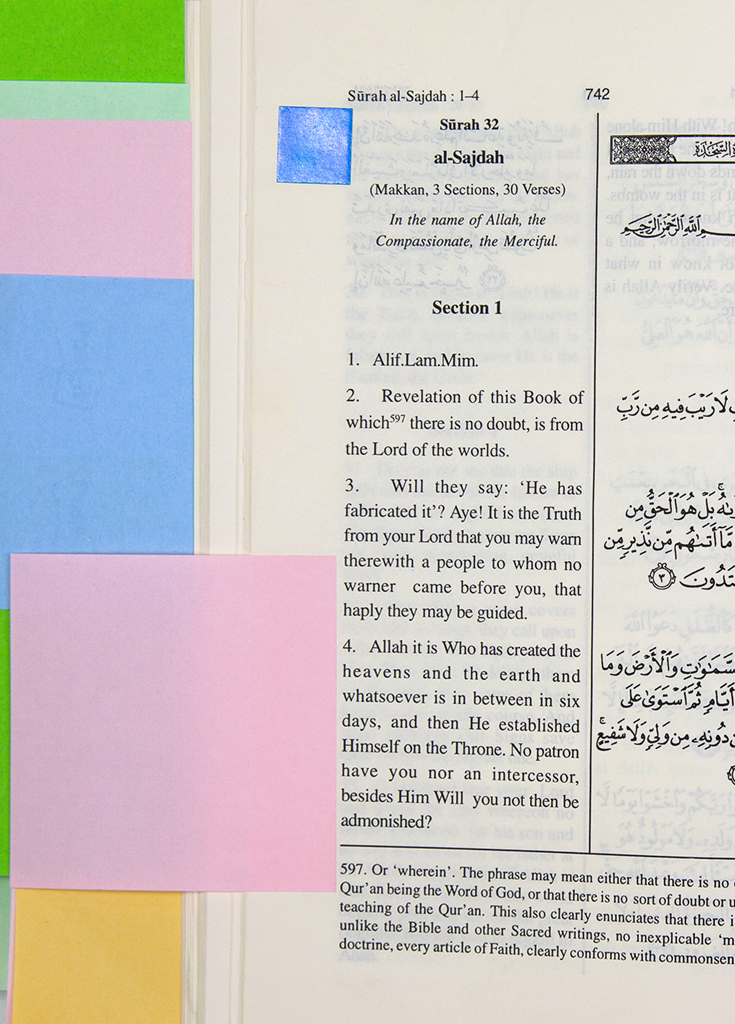 Sūrah al-Sajdah : 1–4
742
Sūrah 32
al-Sajdah
(Makkan, 3 Sections, 30 Verses)
In the name of Allah, the
Compassionate, the Merciful.
Section 1
1. Alif.Lam.Mim.
2. Revelation of this Book of
which⁵⁹⁷ there is no doubt, is from
the Lord of the worlds.
3. Will they say: ‘He has
fabricated it’? Aye! It is the Truth
from your Lord that you may warn
therewith a people to whom no
warner came before you, that
haply they may be guided.
4. Allah it is Who has created the
heavens and the earth and
whatsoever is in between in six
days, and then He established
Himself on the Throne. No patron
have you nor an intercessor,
besides Him Will you not then be
admonished?
ٱللَّهِ ٱلرَّحْمَٰنِ ٱلرَّحِيمِ
لَا رَيْبَ فِيهِ مِن رَّبِّ
بَلْ هُوَ ٱلْحَقُّ مِن
مَّآ أَتَىٰهُم مِّن نَّذِيرٍ مِّن
تَدُونَ ٣
ٱلسَّمَٰوَٰتِ وَٱلْأَرْضَ وَمَا
أَيَّامٍ ثُمَّ ٱسْتَوَىٰ عَلَى
دُونِهِۦ مِن وَلِىٍّ وَلَا شَفِيعٍ
597. Or ‘wherein’. The phrase may mean either that there is no
Qur’an being the Word of God, or that there is no sort of doubt or
teaching of the Qur’an. This also clearly enunciates that there
unlike the Bible and other Sacred writings, no inexplicable
doctrine, every article of Faith, clearly conforms with